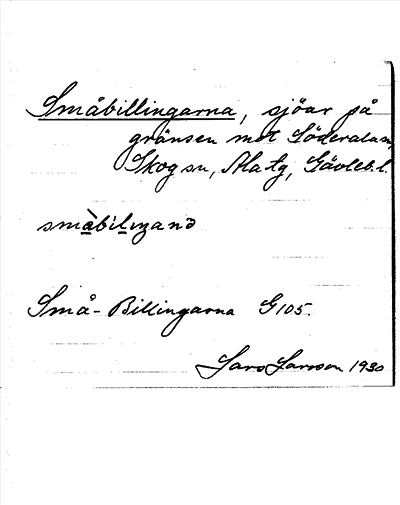 Småbillingarna, sjöar på
gränsen mot Söderala sn,
Skog sn, Ala tg, Gävleb. l.
småbiliŋana
Små-Billingarna G 105.
Lars Larsson 1930